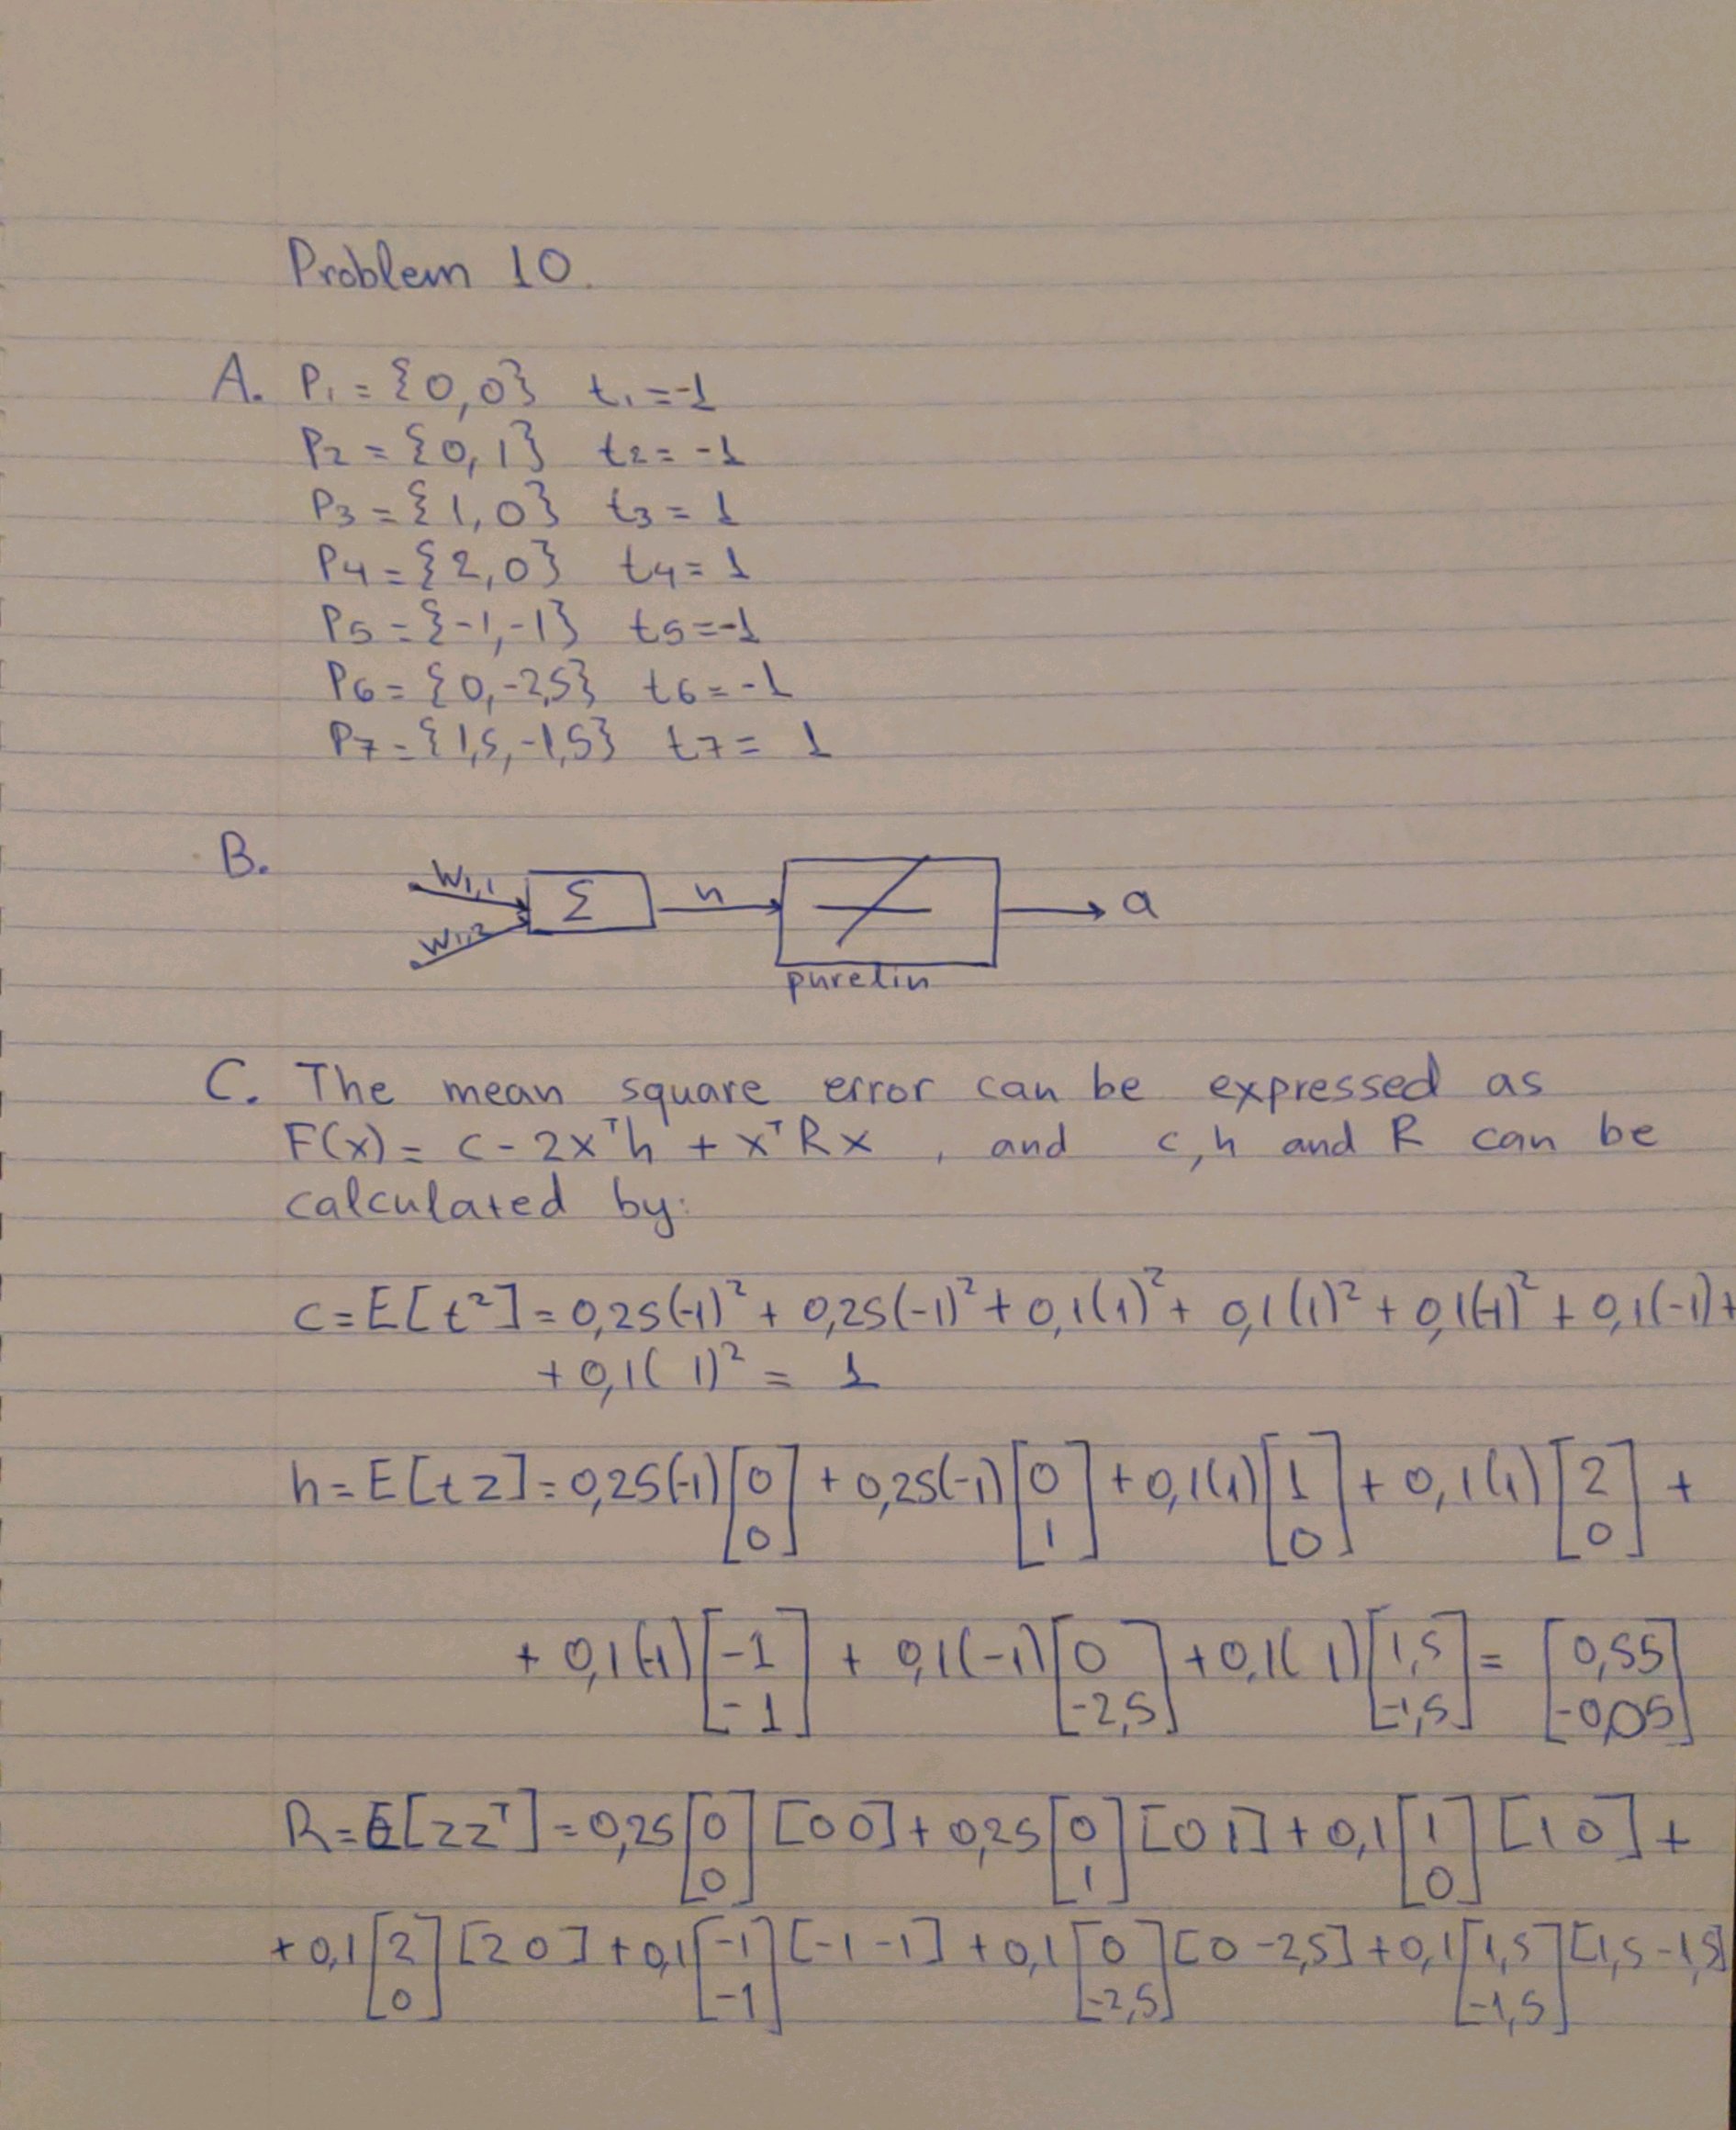 Problem 10.
A. P₁ = {0,0} t₁ = -1
P₂ = {0,1} t₂ = -1
P₃ = {1,0} t₃ = 1
P₄ = {2,0} t₄ = 1
P₅ = {-1,-1} t₅ = -1
P₆ = {0,-2,5} t₆ = -1
P₇ = {1,5,-1,5} t₇ = 1
B.
W₁,₁ Σ n a
W₁,₂
purelin
C. The mean square error can be expressed as
F(x) = c - 2xᵀh + xᵀRx , and c,h and R can be
calculated by:
c = E[t²] = 0,25(-1)² + 0,25(-1)² + 0,1(1)² + 0,1(1)² + 0,1(-1)² + 0,1(-1)+
+ 0,1( 1)² = 1
h = E[tz] = 0,25(-1)[0 0] + 0,25(-1)[0 1] + 0,1(1)[1 0] + 0,1(1)[2 0] +
+ 0,1(-1)[-1 -1] + 0,1(-1)[0 -2,5] + 0,1( 1)[1,5 -1,5] = [0,55 -0,05]
R = E[zzᵀ] = 0,25[0 0][0 0] + 0,25[0 1][0 1] + 0,1[1 0][1 0] +
+ 0,1[2 0][2 0] + 0,1[-1 -1][-1 -1] + 0,1[0 -2,5][0 -2,5] + 0,1[1,5 -1,5][1,5 -1,5]